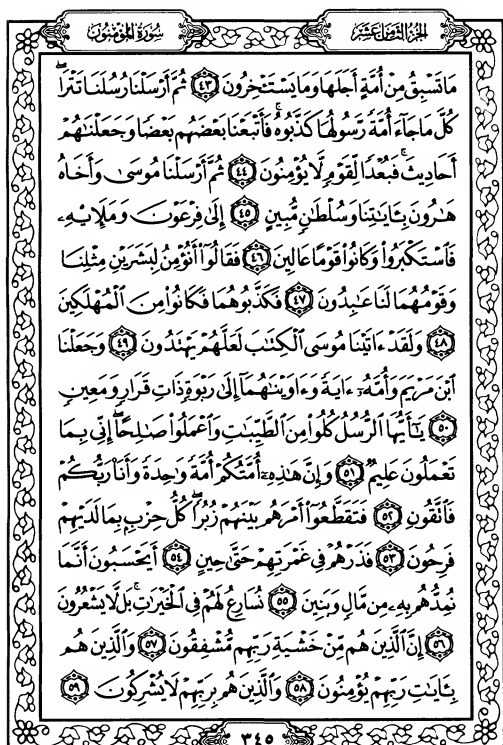 سُورَةُ المُؤْمِنُونَ
الجُزءُ الثَّامِنَ عَشَرَ
مَا تَسْبِقُ مِنْ أُمَّةٍ أَجَلَهَا وَمَا يَسْتَـْٔخِرُونَ ٤٣ ثُمَّ أَرْسَلْنَا رُسُلَنَا تَتْرَاۖ
كُلَّ مَا جَآءَ أُمَّةً رَّسُولُهَا كَذَّبُوهُۚ فَأَتْبَعْنَا بَعْضَهُم بَعْضًا وَجَعَلْنَٰهُمْ
أَحَادِيثَۚ فَبُعْدًا لِّقَوْمٍ لَّا يُؤْمِنُونَ ٤٤ ثُمَّ أَرْسَلْنَا مُوسَىٰ وَأَخَاهُ
هَٰرُونَ بِـَٔايَٰتِنَا وَسُلْطَٰنٍ مُّبِينٍ ٤٥ إِلَىٰ فِرْعَوْنَ وَمَلَإِيْهِۦ
فَٱسْتَكْبَرُوا۟ وَكَانُوا۟ قَوْمًا عَالِينَ ٤٦ فَقَالُوٓا۟ أَنُؤْمِنُ لِبَشَرَيْنِ مِثْلِنَا
وَقَوْمُهُمَا لَنَا عَٰبِدُونَ ٤٧ فَكَذَّبُوهُمَا فَكَانُوا۟ مِنَ ٱلْمُهْلَكِينَ
٤٨ وَلَقَدْ ءَاتَيْنَا مُوسَى ٱلْكِتَٰبَ لَعَلَّهُمْ يَهْتَدُونَ ٤٩ وَجَعَلْنَا
ٱبْنَ مَرْيَمَ وَأُمَّهُۥٓ ءَايَةً وَءَاوَيْنَٰهُمَآ إِلَىٰ رَبْوَةٍ ذَاتِ قَرَارٍ وَمَعِينٍ
٥٠ يَٰٓأَيُّهَا ٱلرُّسُلُ كُلُوا۟ مِنَ ٱلطَّيِّبَٰتِ وَٱعْمَلُوا۟ صَٰلِحًاۖ إِنِّى بِمَا
تَعْمَلُونَ عَلِيمٌ ٥١ وَإِنَّ هَٰذِهِۦٓ أُمَّتُكُمْ أُمَّةً وَٰحِدَةً وَأَنَا۠ رَبُّكُمْ
فَٱتَّقُونِ ٥٢ فَتَقَطَّعُوٓا۟ أَمْرَهُم بَيْنَهُمْ زُبُرًاۖ كُلُّ حِزْبٍۭ بِمَا لَدَيْهِمْ
فَرِحُونَ ٥٣ فَذَرْهُمْ فِى غَمْرَتِهِمْ حَتَّىٰ حِينٍ ٥٤ أَيَحْسَبُونَ أَنَّمَا
نُمِدُّهُم بِهِۦ مِن مَّالٍ وَبَنِينَ ٥٥ نُسَارِعُ لَهُمْ فِى ٱلْخَيْرَٰتِۚ بَل لَّا يَشْعُرُونَ
٥٦ إِنَّ ٱلَّذِينَ هُم مِّنْ خَشْيَةِ رَبِّهِم مُّشْفِقُونَ ٥٧ وَٱلَّذِينَ هُم
بِـَٔايَٰتِ رَبِّهِمْ يُؤْمِنُونَ ٥٨ وَٱلَّذِينَ هُم بِرَبِّهِمْ لَا يُشْرِكُونَ ٥٩
٣٤٥